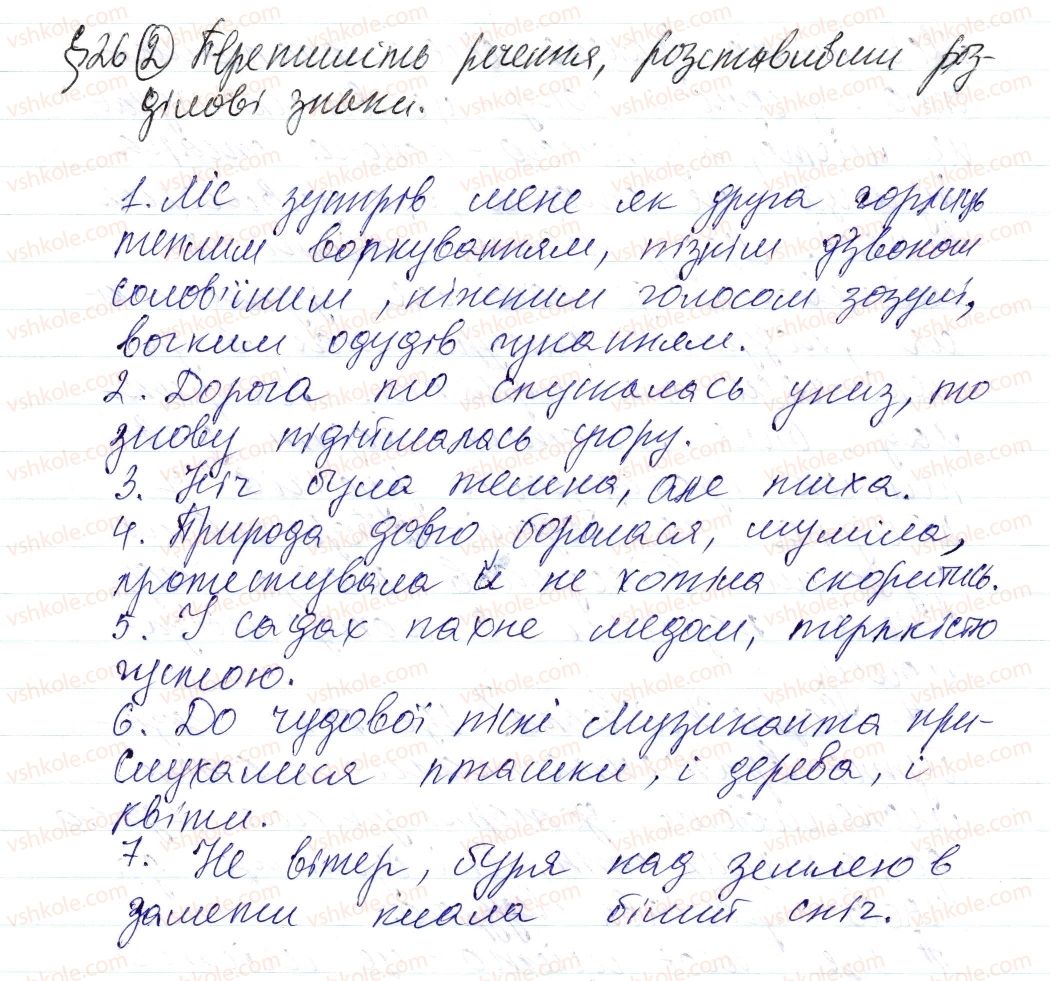 §26 (2) Перепишіть речення, розставивши роз-
ділові знаки.
1. Ліс зустрів мене як друга горлиць
теплим воркуванням, пізнім дзвоном
солов'їним, ніжним голосом зозулі,
вогким одудів гуканням.
2. Дорога то спускалась униз, то
знову підіймалась угору.
3. Ніч була темна, але тиха.
4. Природа довго боролася, шуміла,
протестувала й не хотіла скоритись.
5. У садах пахне медом, терпкістю
густою.
6. До чудової пісні музиканта при-
слухалися пташки, і дерева, і
квіти.
7. Не вітер, буря над землею в
замети клала білий сніг.